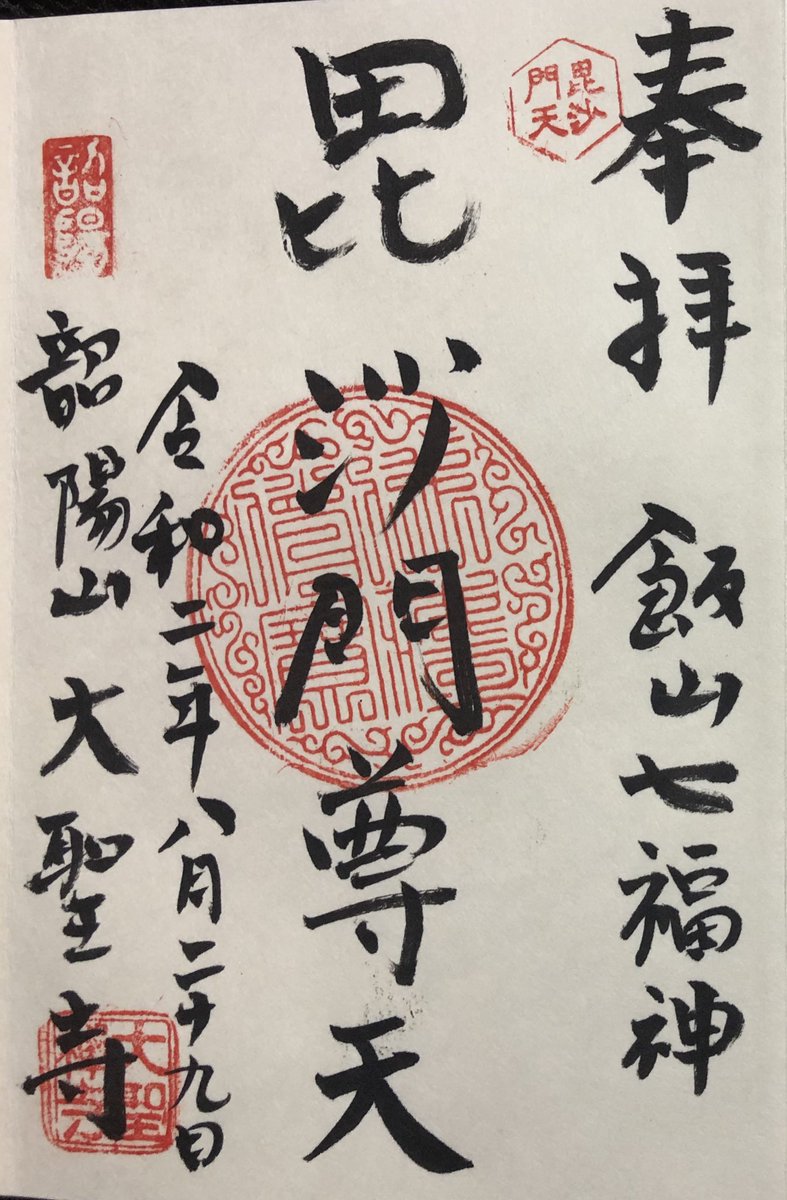 奉拝 飯山七福神
毘沙
門天
毘沙門尊天
令和二年八月二十九日
韶陽山 大聖寺
大聖